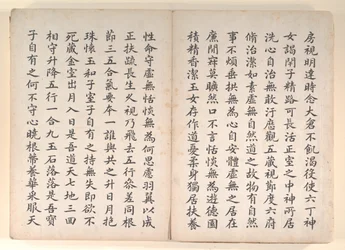 房視明達時念大倉不飢渴役使六丁神
女謁閉子精路可長活正室之中神所居
洗心自治無敢汙歷觀五藏視節度六府
脩治潔如素虛無自然道之故物有自然
事不煩垂拱無為心自安體虛無之居在
廉間寂莫曠然口不言恬惔無為遊德園
積精香潔玉女存作道憂柔身獨居扶養
性命守虛無恬惔無為何思慮羽翼以成
正扶疏長生久視乃飛去五行參差同根
節三五合氣要本一誰與共之升日月抱
珠懷玉和子室子自有之持無失即欲不
死藏金室出月入日是吾道天七地三回
相守升降五行一合九玉石落落是吾寶
子自有之何不守心曉根蔕養華采服天